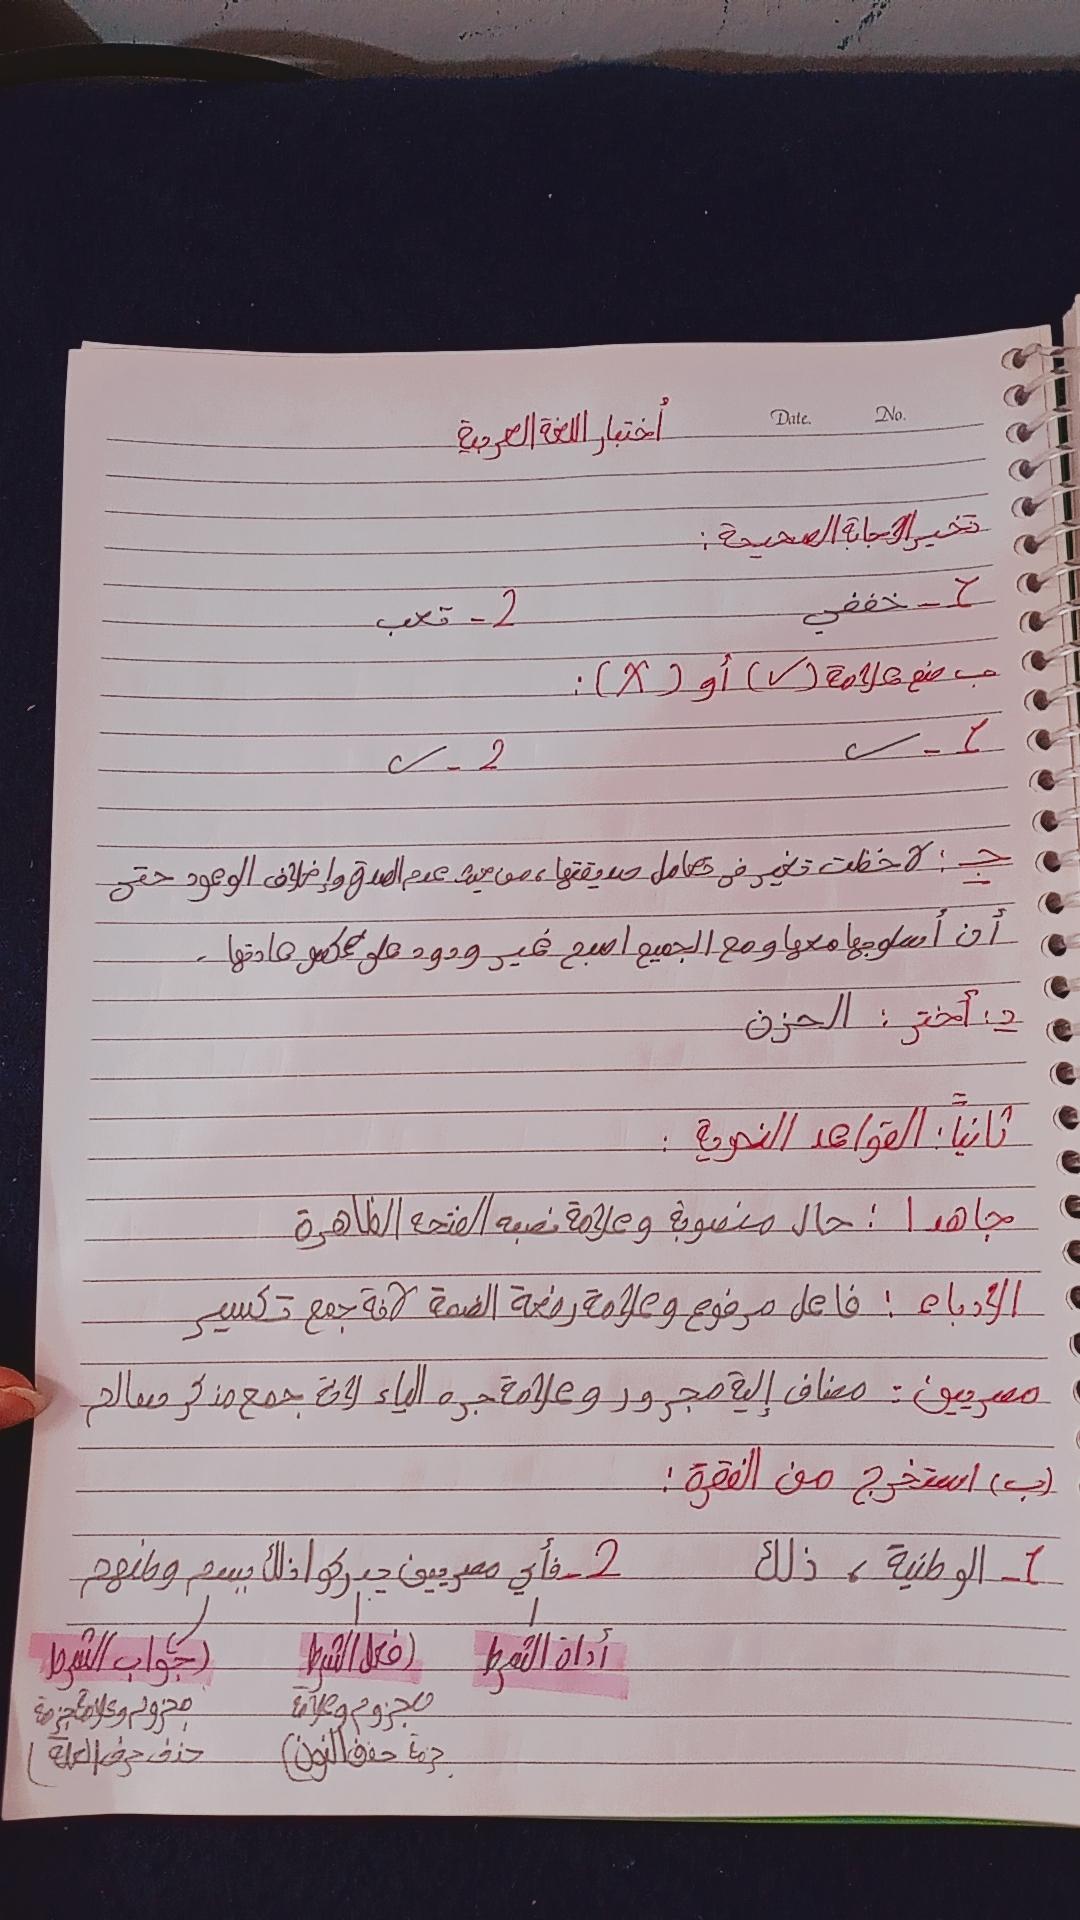 No. Date.
أختبار اللغة العربية
تخير الاجابة الصحيحة :
1- خففي 2- تعب
ب ضع علامة (✓) أو (X) :
1- ✓ 2- ✓
جـ : لاحظت تغير في تعامل صديقتها، من حيث عدم الصدق وإخلاف الوعود حتى
أن أسلوبها معها ومع الجميع اصبح غير ودود على عكس عادتها .
د: أختر : الحزن
ثانياً : القواعد النحوية :
جاهدا : حال منصوبة وعلامة نصبه الفتحه الظاهرة
الأدباء : فاعل مرفوع وعلامة رفعة الضمة لانة جمع تكسير
مصريين : مضاف إلية مجرور وعلامة جره الياء لانة جمع مذكر سالم
(ب) استخرج من الفقرة :
1- الوطنية ، ذلك 2- فأي مصريين يدركوا ذلك يسم وطنهم
أداة الشرط (فعل الشرط (جواب الشرط
مجزوم وعلامة مجزوم وعلامة جزمة
جزمة حذف النون) حذف حرف العلة)